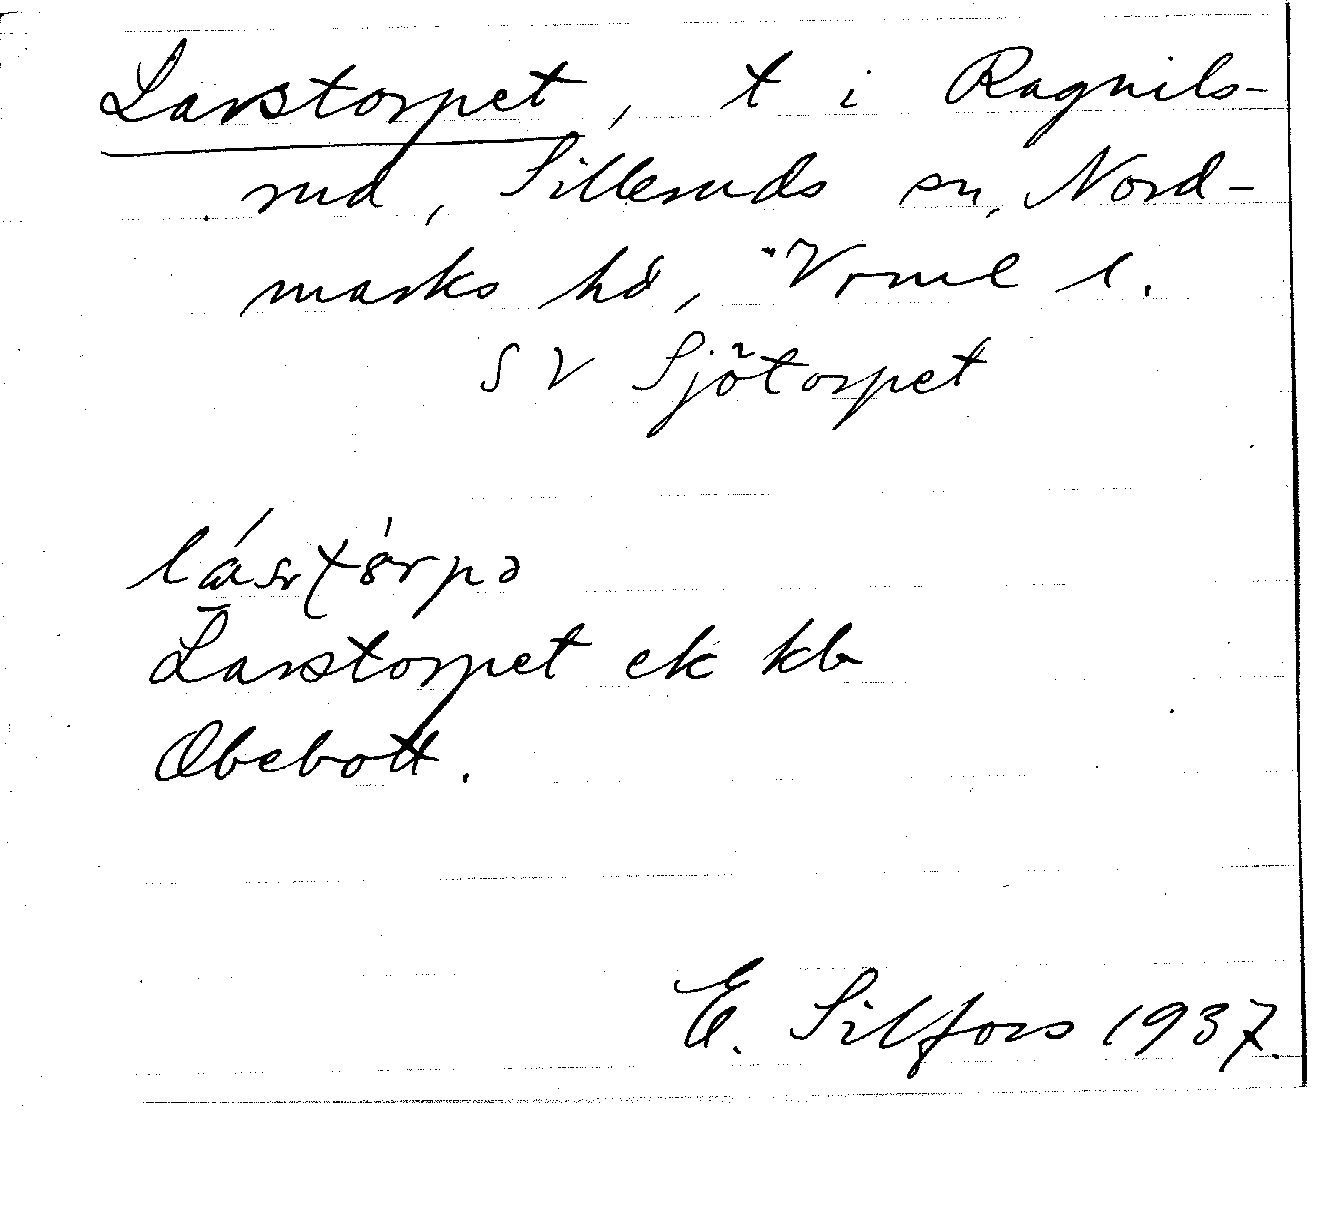 Larstorpet, t i Ragnils-
rud, Silleruds sn, Nord-
marks hd, Vrml l.
SV Sjötorpet

Larstorpet ek kb
Obebott.
E. Silfors 1937.